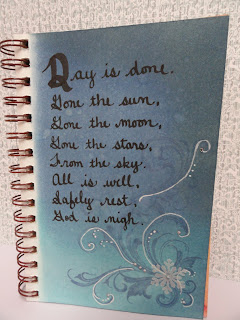 Day is done.
Gone the sun,
Gone the moon,
Gone the stars,
From the sky.
All is well,
Safely rest,
God is nigh.